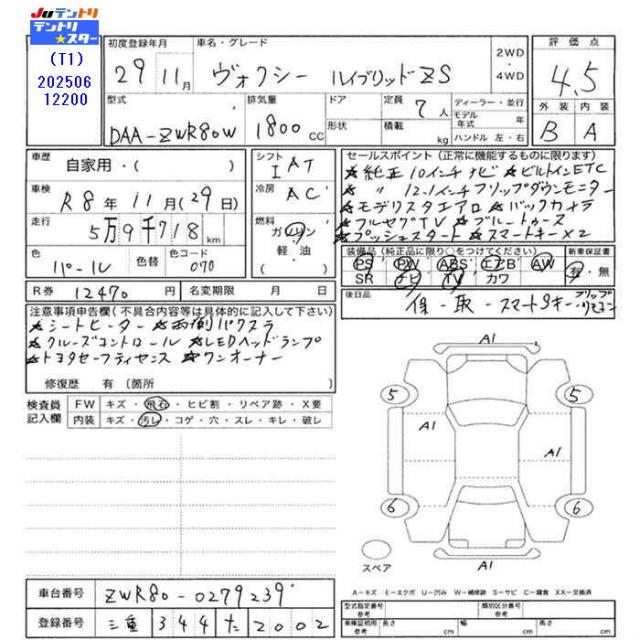 JUテントリ
テントリ★スター
(T1)
202506
12200
初度登録年月 車名・グレード 2WD・4WD 評価点
29年11月 ヴォクシー ハイブリッドZS 4.5
型式 排気量 ドア 定員 ディーラー・並行 外装 内装
DAA-ZWR80W 1800cc 7人 モデル年式 年 B A
形状 積載 kg ハンドル 左・右
車歴 自家用・( ) シフト IAT
車検 R8年11月(29日) 冷房 AC
走行 5万9千718km 燃料 ガソリン 軽・油 ( )
色 パール 色替 色コード 070
R券 12470円 名変期限 月 日
セールスポイント(正常に機能するものに限ります)
★純正10インチナビ ★ビルトインETC
★〃 12.1インチフリップダウンモニター
★モデリスタエアロ ★バックカメラ
★フルセグTV ★ブルートゥース
★プッシュスタート ★スマートキー×2
装備品(純正品に限り○をつけてください) 新車保証書
PS PW ABS エアB AW 有・無
SR ナビ TV カワ
後日品 保・取・スマートSキー・フリップリモコン
注意事項申告欄(不具合内容等は具体的に記入して下さい)
★シートヒーター ★両側パワスラ
★クルーズコントロール ★LEDヘッドランプ
★トヨタセーフティセンス ★ワンオーナー
修復歴 有〔箇所 〕
検査員記入欄 FW キズ・飛石・ヒビ割・リペア跡・X要
内装 キズ・汚レ・コゲ・穴・スレ・キレ・破レ
A1
5 5
A1 A1
6 6
A1
スペア
A-キズ E-エクボ U-凹み W-補修跡 S-サビ C-腐食 XX-交換済
車台番号 ZWR80-0279239
登録番号 三重 344 た 2002
型式指定番号 参考 類別区分番号 参考
車検証寸法 参考 長さ cm 幅 cm 高さ cm